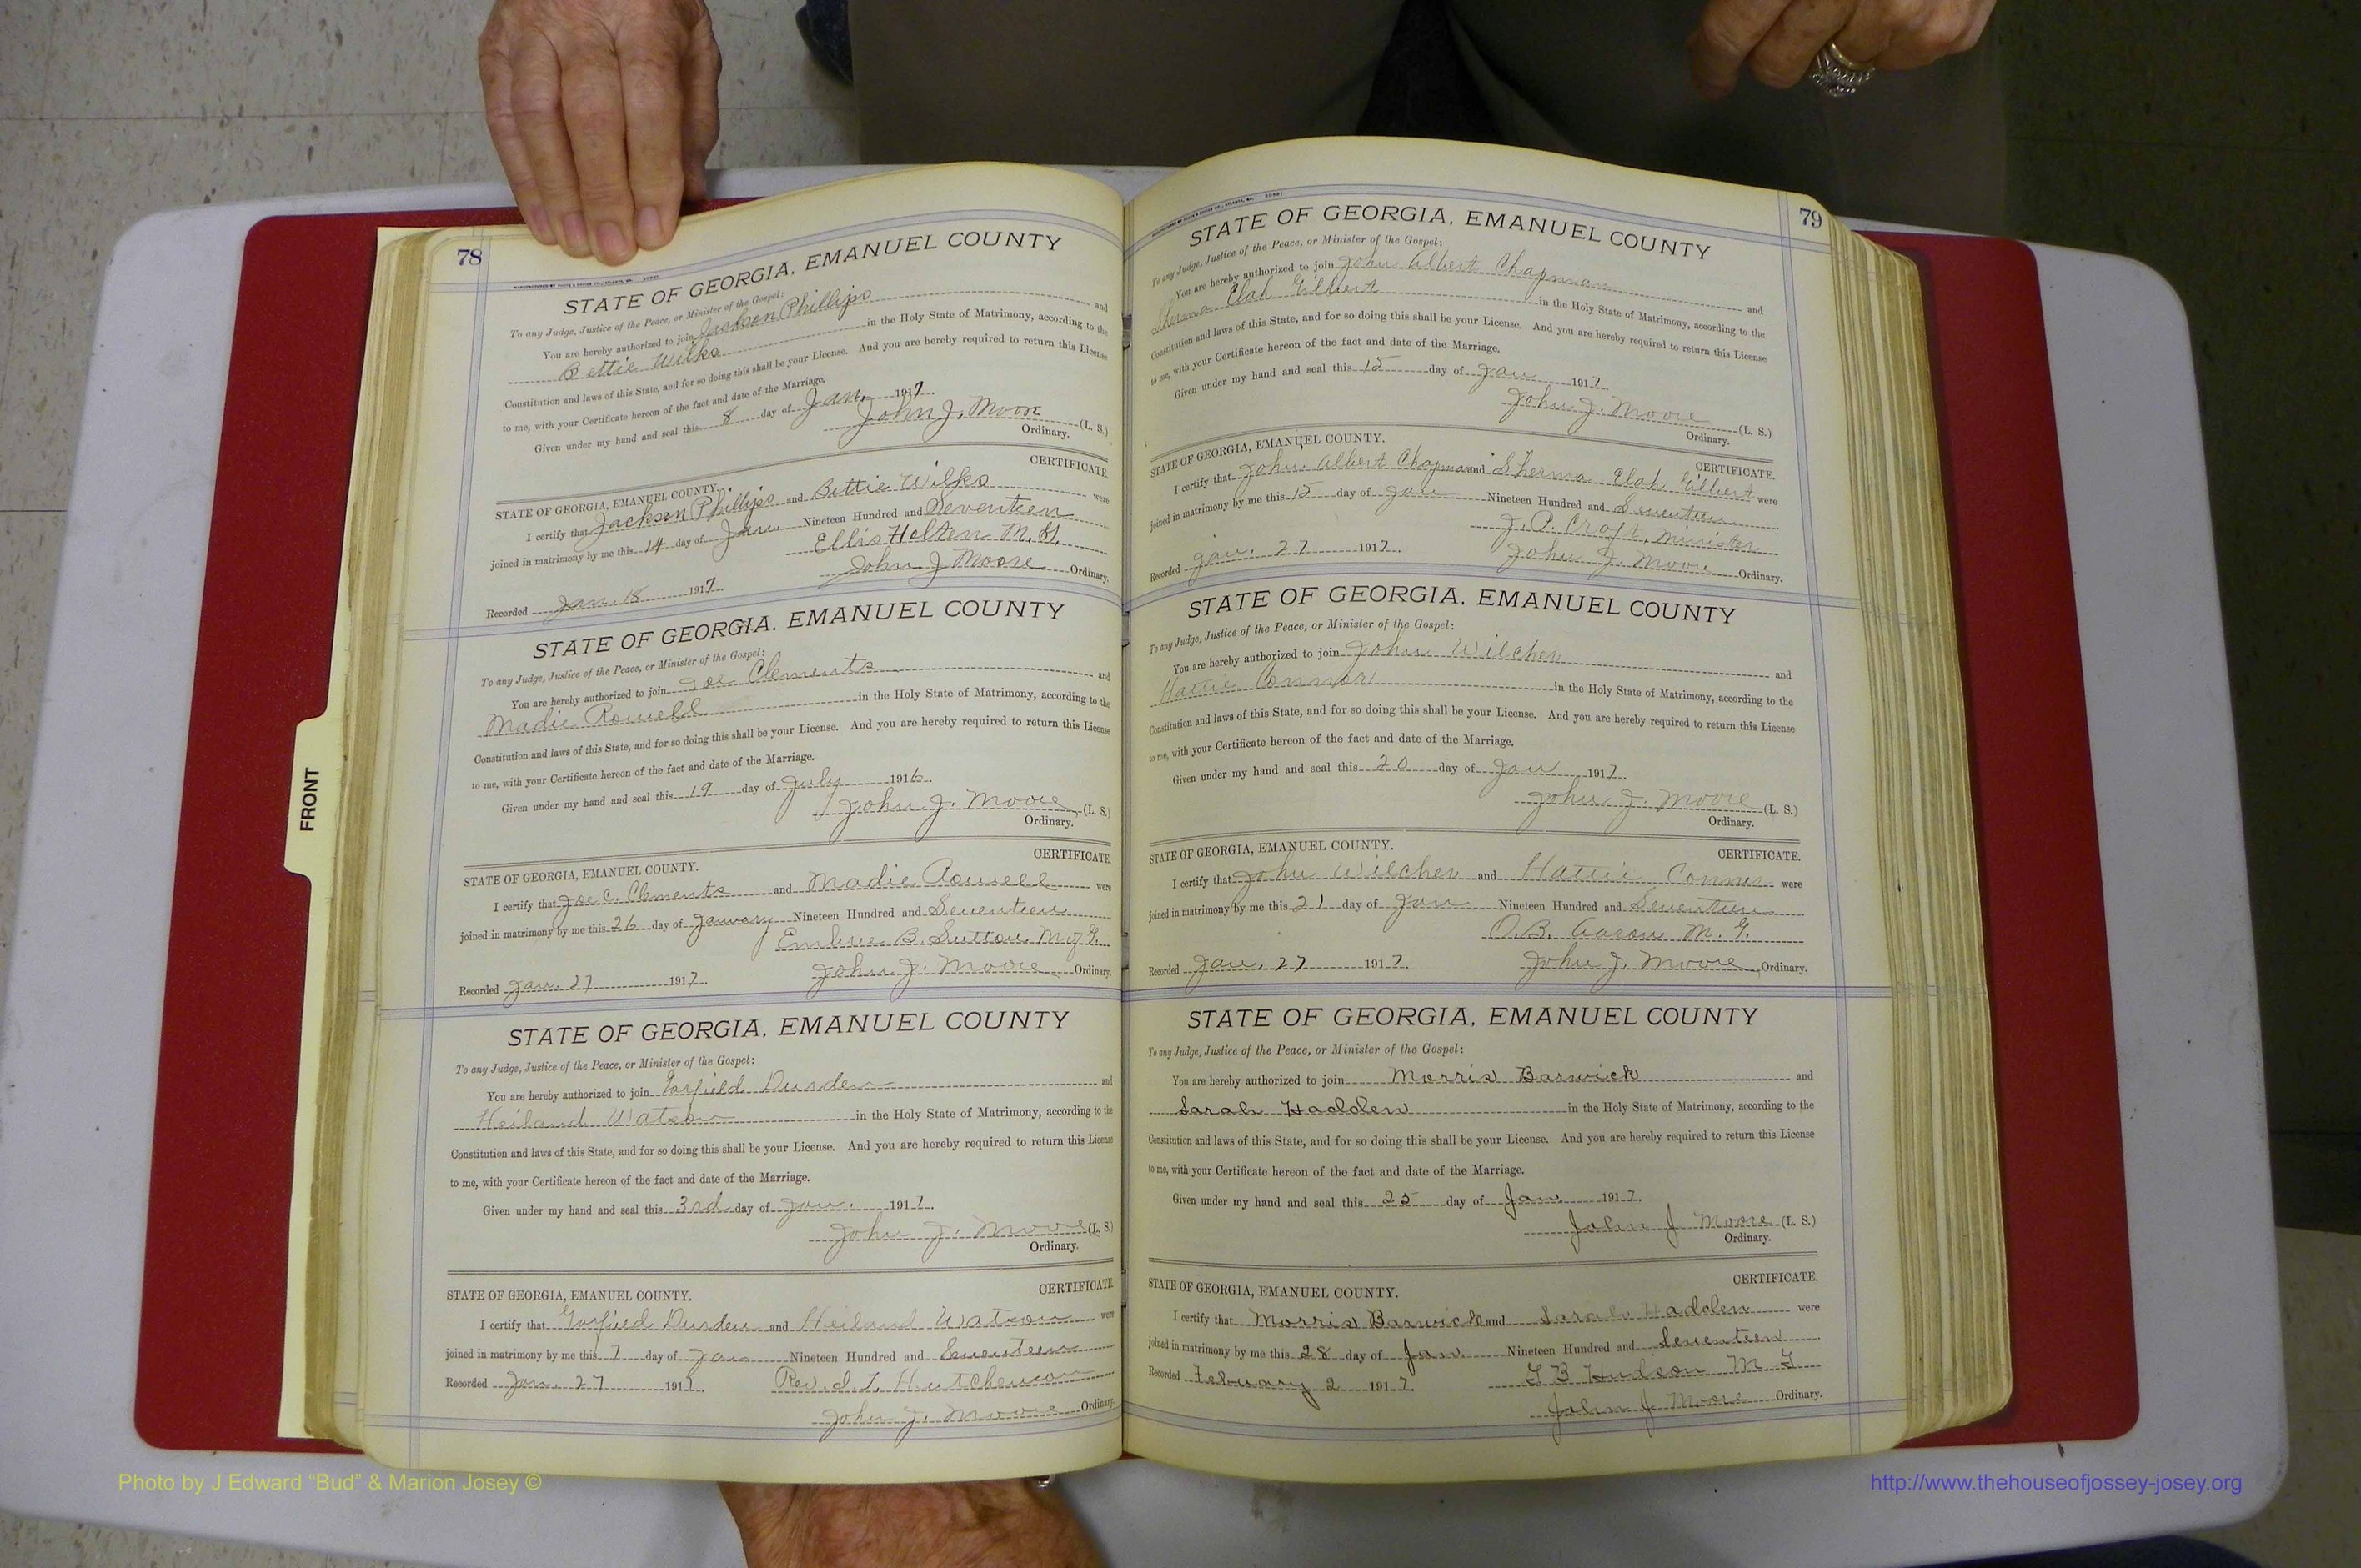 78
STATE OF GEORGIA, EMANUEL COUNTY
To any Judge, Justice of the Peace, or Minister of the Gospel:
You are hereby authorized to join Jackson Phillips and
Bettie Wilks in the Holy State of Matrimony, according to the
Constitution and laws of this State, and for so doing this shall be your License. And you are hereby required to return this License
to me, with your Certificate hereon of the fact and date of the Marriage.
Given under my hand and seal this 8 day of Jan. 1917
John J. Moore (L. S.)
Ordinary.
STATE OF GEORGIA, EMANUEL COUNTY. CERTIFICATE.
I certify that Jackson Phillips and Bettie Wilks were
joined in matrimony by me this 14 day of Jan. Nineteen Hundred and Seventeen
Ellis Holten M. G.
Recorded Jan. 18 1917 John J Moore Ordinary.
STATE OF GEORGIA, EMANUEL COUNTY
To any Judge, Justice of the Peace, or Minister of the Gospel:
You are hereby authorized to join Joe Clements and
Madie Rowell in the Holy State of Matrimony, according to the
Constitution and laws of this State, and for so doing this shall be your License. And you are hereby required to return this License
to me, with your Certificate hereon of the fact and date of the Marriage.
Given under my hand and seal this 19 day of July 1916.
John J. Moore (L. S.)
Ordinary.
STATE OF GEORGIA, EMANUEL COUNTY. CERTIFICATE.
I certify that Joe C. Clements and Madie Rowell were
joined in matrimony by me this 26 day of January Nineteen Hundred and Seventeen
Embree B. Sutton M of G.
Recorded Jan. 27 1917. John J. Moore Ordinary.
STATE OF GEORGIA, EMANUEL COUNTY
To any Judge, Justice of the Peace, or Minister of the Gospel:
You are hereby authorized to join Garfield Durden and
Heiland Watson in the Holy State of Matrimony, according to the
Constitution and laws of this State, and for so doing this shall be your License. And you are hereby required to return this License
to me, with your Certificate hereon of the fact and date of the Marriage.
Given under my hand and seal this 3rd day of Jan. 1917.
John J. Moore (L. S.)
Ordinary.
STATE OF GEORGIA, EMANUEL COUNTY. CERTIFICATE.
I certify that Garfield Durden and Heiland Watson were
joined in matrimony by me this 7 day of Jan Nineteen Hundred and Seventeen
Recorded Jan. 27 1917. Rev. J. T. Hutcheson
John J. Moore Ordinary.
79
STATE OF GEORGIA, EMANUEL COUNTY
To any Judge, Justice of the Peace, or Minister of the Gospel:
You are hereby authorized to join John Albert Chapman and
Sherma Elah Gilbert in the Holy State of Matrimony, according to the
Constitution and laws of this State, and for so doing this shall be your License. And you are hereby required to return this License
to me, with your Certificate hereon of the fact and date of the Marriage.
Given under my hand and seal this 15 day of Jan 1917.
John J. Moore (L. S.)
Ordinary.
STATE OF GEORGIA, EMANUEL COUNTY. CERTIFICATE.
I certify that John Albert Chapman and Sherma Elah Gilbert were
joined in matrimony by me this 15 day of Jan Nineteen Hundred and Seventeen
J. P. Croft, Minister
Recorded Jan. 27 1917. John J. Moore Ordinary.
STATE OF GEORGIA, EMANUEL COUNTY
To any Judge, Justice of the Peace, or Minister of the Gospel:
You are hereby authorized to join John Wilcher and
Hattie Connor in the Holy State of Matrimony, according to the
Constitution and laws of this State, and for so doing this shall be your License. And you are hereby required to return this License
to me, with your Certificate hereon of the fact and date of the Marriage.
Given under my hand and seal this 20 day of Jan 1917.
John J. Moore (L. S.)
Ordinary.
STATE OF GEORGIA, EMANUEL COUNTY. CERTIFICATE.
I certify that John Wilcher and Hattie Conner were
joined in matrimony by me this 21 day of Jan Nineteen Hundred and Seventeen
O.B. Aaron M. G.
Recorded Jan. 27 1917. John J. Moore Ordinary.
STATE OF GEORGIA, EMANUEL COUNTY
To any Judge, Justice of the Peace, or Minister of the Gospel:
You are hereby authorized to join Morris Barwick and
Sarah Hadden in the Holy State of Matrimony, according to the
Constitution and laws of this State, and for so doing this shall be your License. And you are hereby required to return this License
to me, with your Certificate hereon of the fact and date of the Marriage.
Given under my hand and seal this 25 day of Jan. 1917.
John J Moore (L. S.)
Ordinary.
STATE OF GEORGIA, EMANUEL COUNTY. CERTIFICATE.
I certify that Morris Barwick and Sarah Hadden were
joined in matrimony by me this 28 day of Jan. Nineteen Hundred and Seventeen
Recorded Febuary 2 1917. G B Hudson M G
John J Moore Ordinary.
FRONT
Photo by J Edward "Bud" & Marion Josey ©
http://www.thehouseofjossey-josey.org